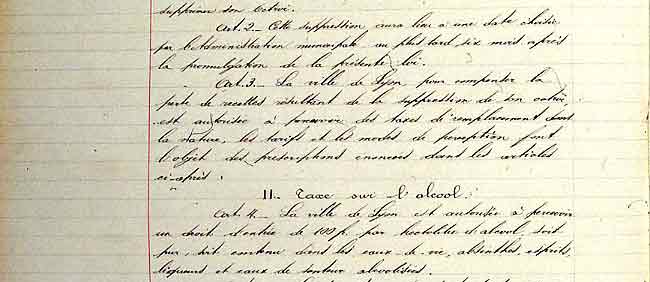 supprimer son Octroi.
Art. 2 - Cette suppression aura lieu à une date choisie
par l'Administration municipale au plus tard six mois après
la promulgation de la présente loi.
Art. 3. - La ville de Lyon pour compenser la
perte de recettes résultant de la suppression de son octroi
est autorisée à percevoir des taxes de remplacement dont
la nature, les tarifs et les modes de perception font
l'objet des prescriptions énoncées dans les articles
ci-après.
II - Taxe sur l'alcool.
Art. 4. - La ville de Lyon est autorisée à percevoir
un droit d'entrée de 199 f. par hectolitre d'alcool, soit
pur, soit contenu dans les eaux de vie, absinthes, esprits,
liqueurs et eaux de senteur alcoolisées.